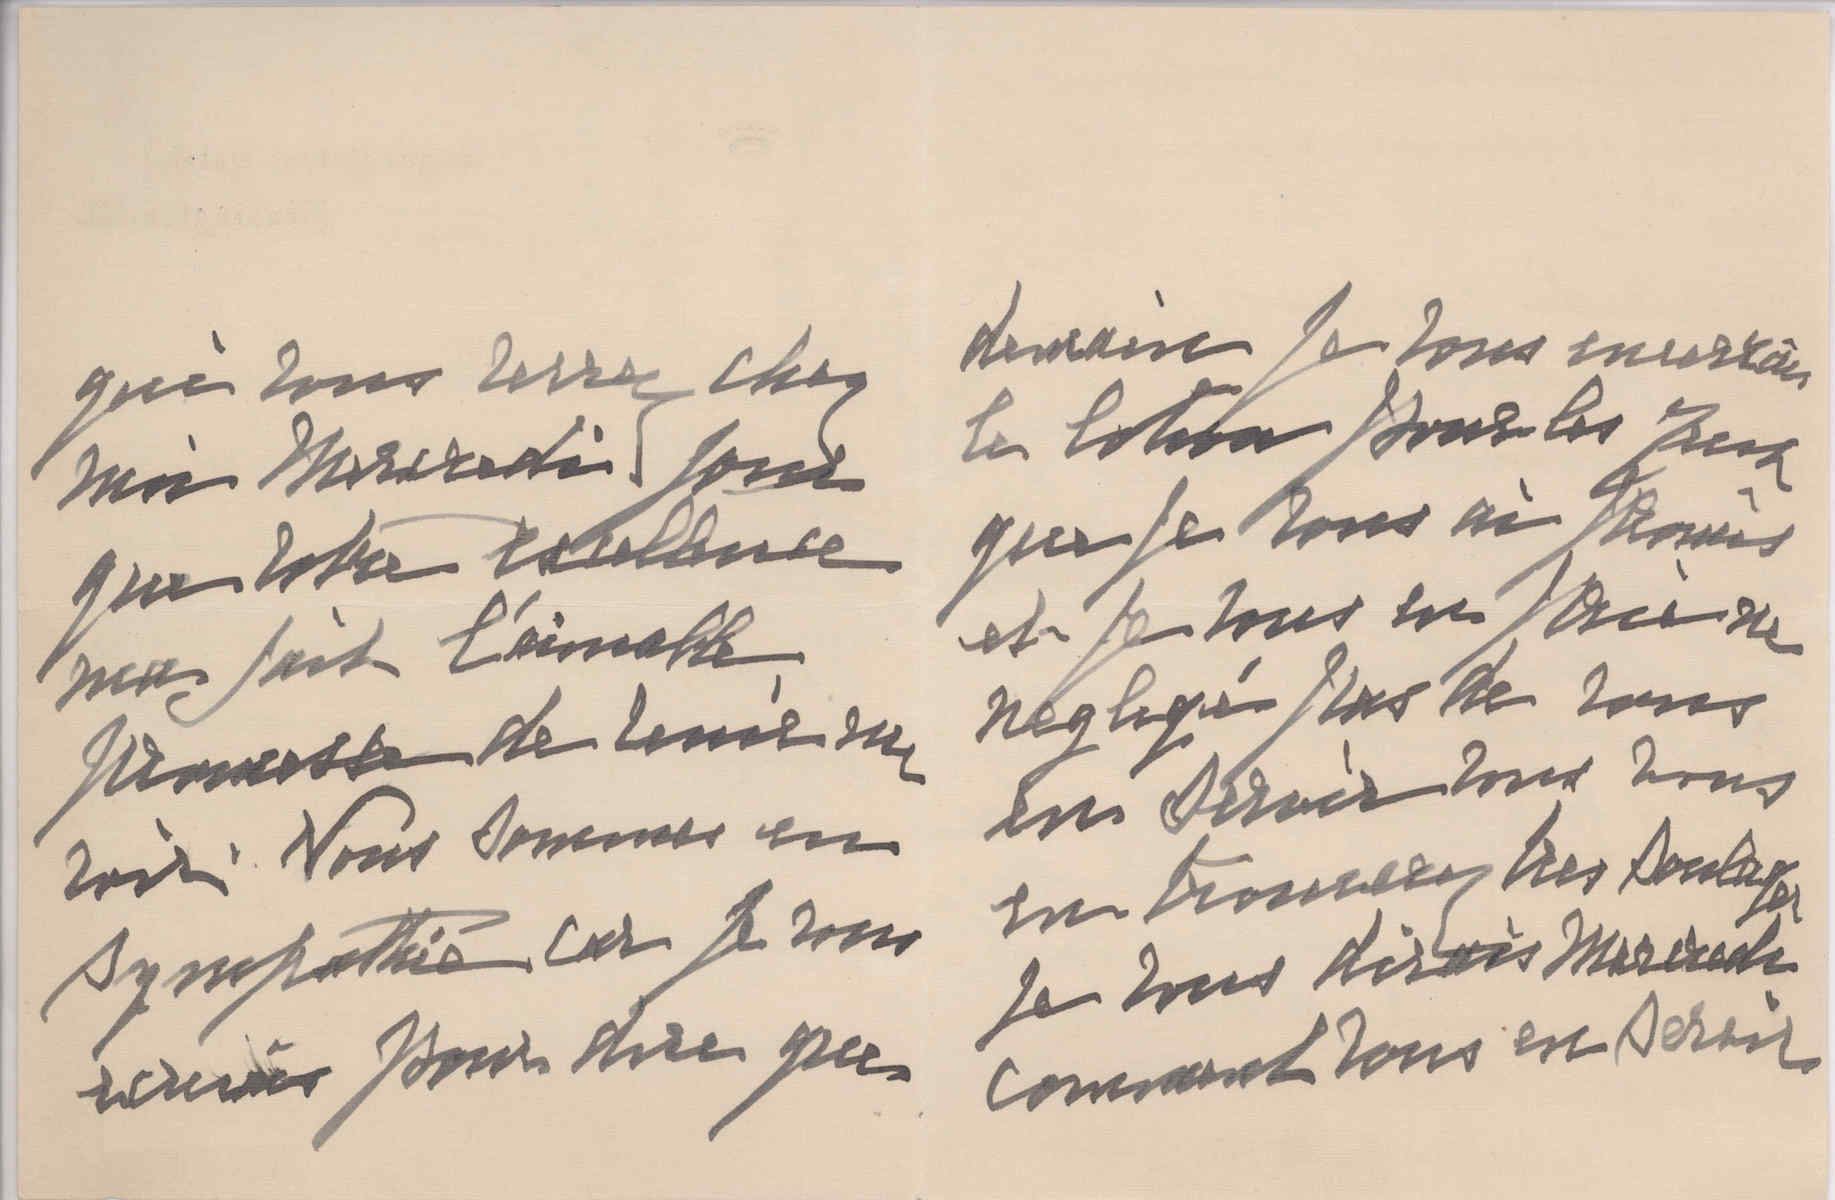 qui vous verrez chez
moi Mercredi jour
que votre excellence
ma fait l'aimable
promesse de venir me
voir. Nous sommes en
sympathie car je vous
ecrivais pour dire que
demain je vous enverrais
la lotion pour les yeux
que je vous ai promis
et je vous en prie ne
negligé pas de vous
en servir vous vous
en trouverez tres soulager
je vous dirais Mercredi
comment vous en servir